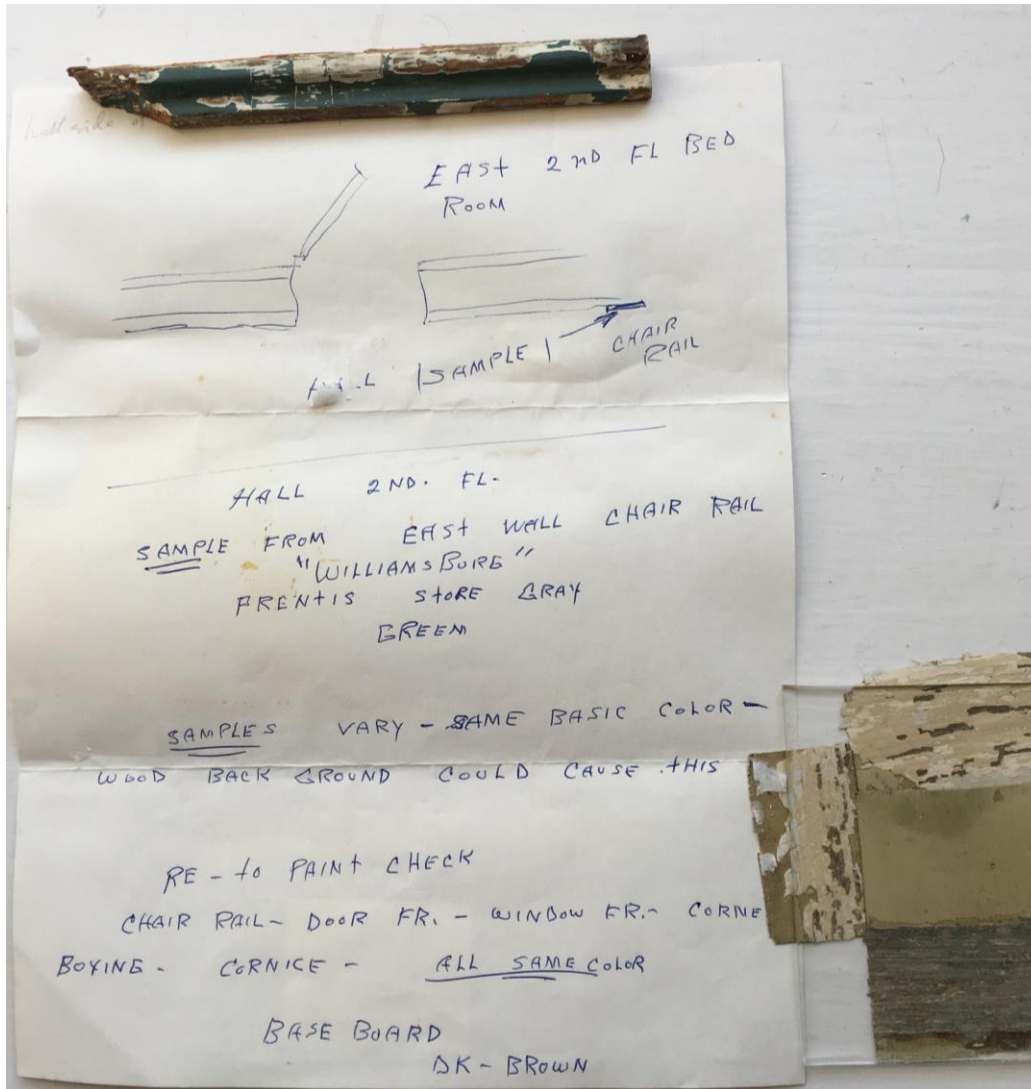 hall side of
EAST 2ND FL BED
ROOM
SAMPLE
CHAIR
RAIL
HALL 2ND. FL.
SAMPLE FROM EAST WALL CHAIR RAIL
"WILLIAMSBURG"
PRENTIS STORE GRAY
GREEM
SAMPLES VARY - SAME BASIC COLOR -
WOOD BACK GROUND COULD CAUSE THIS
RE - to PAINT CHECK
CHAIR RAIL - DOOR FR. - WINDOW FR. - CORNE
BOXING - CORNICE - ALL SAME COLOR
BASE BOARD
DK - BROWN